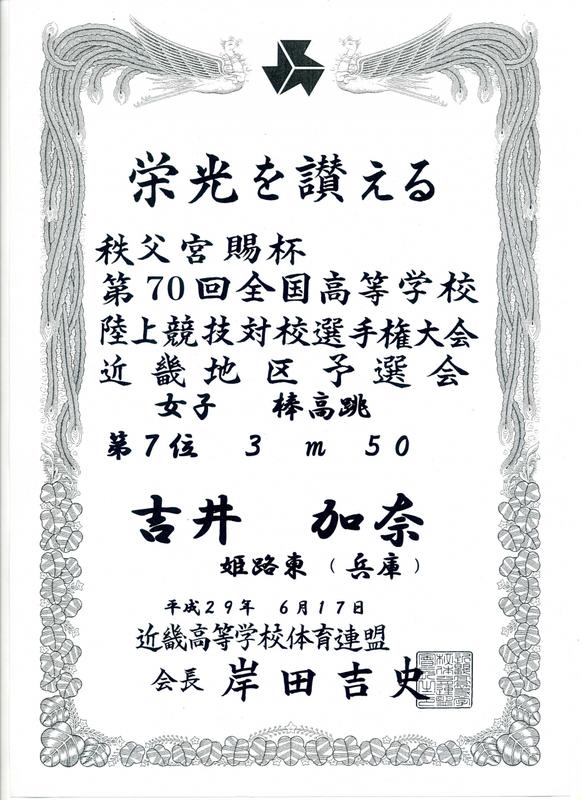 栄光を讃える
秩父宮賜杯
第70回全国高等学校
陸上競技対校選手権大会
近畿地区予選会
女子 棒高跳
第7位 3 m 50
吉井 加奈
姫路東 (兵庫)
平成29年 6月17日
近畿高等学校体育連盟
会長 岸田吉史